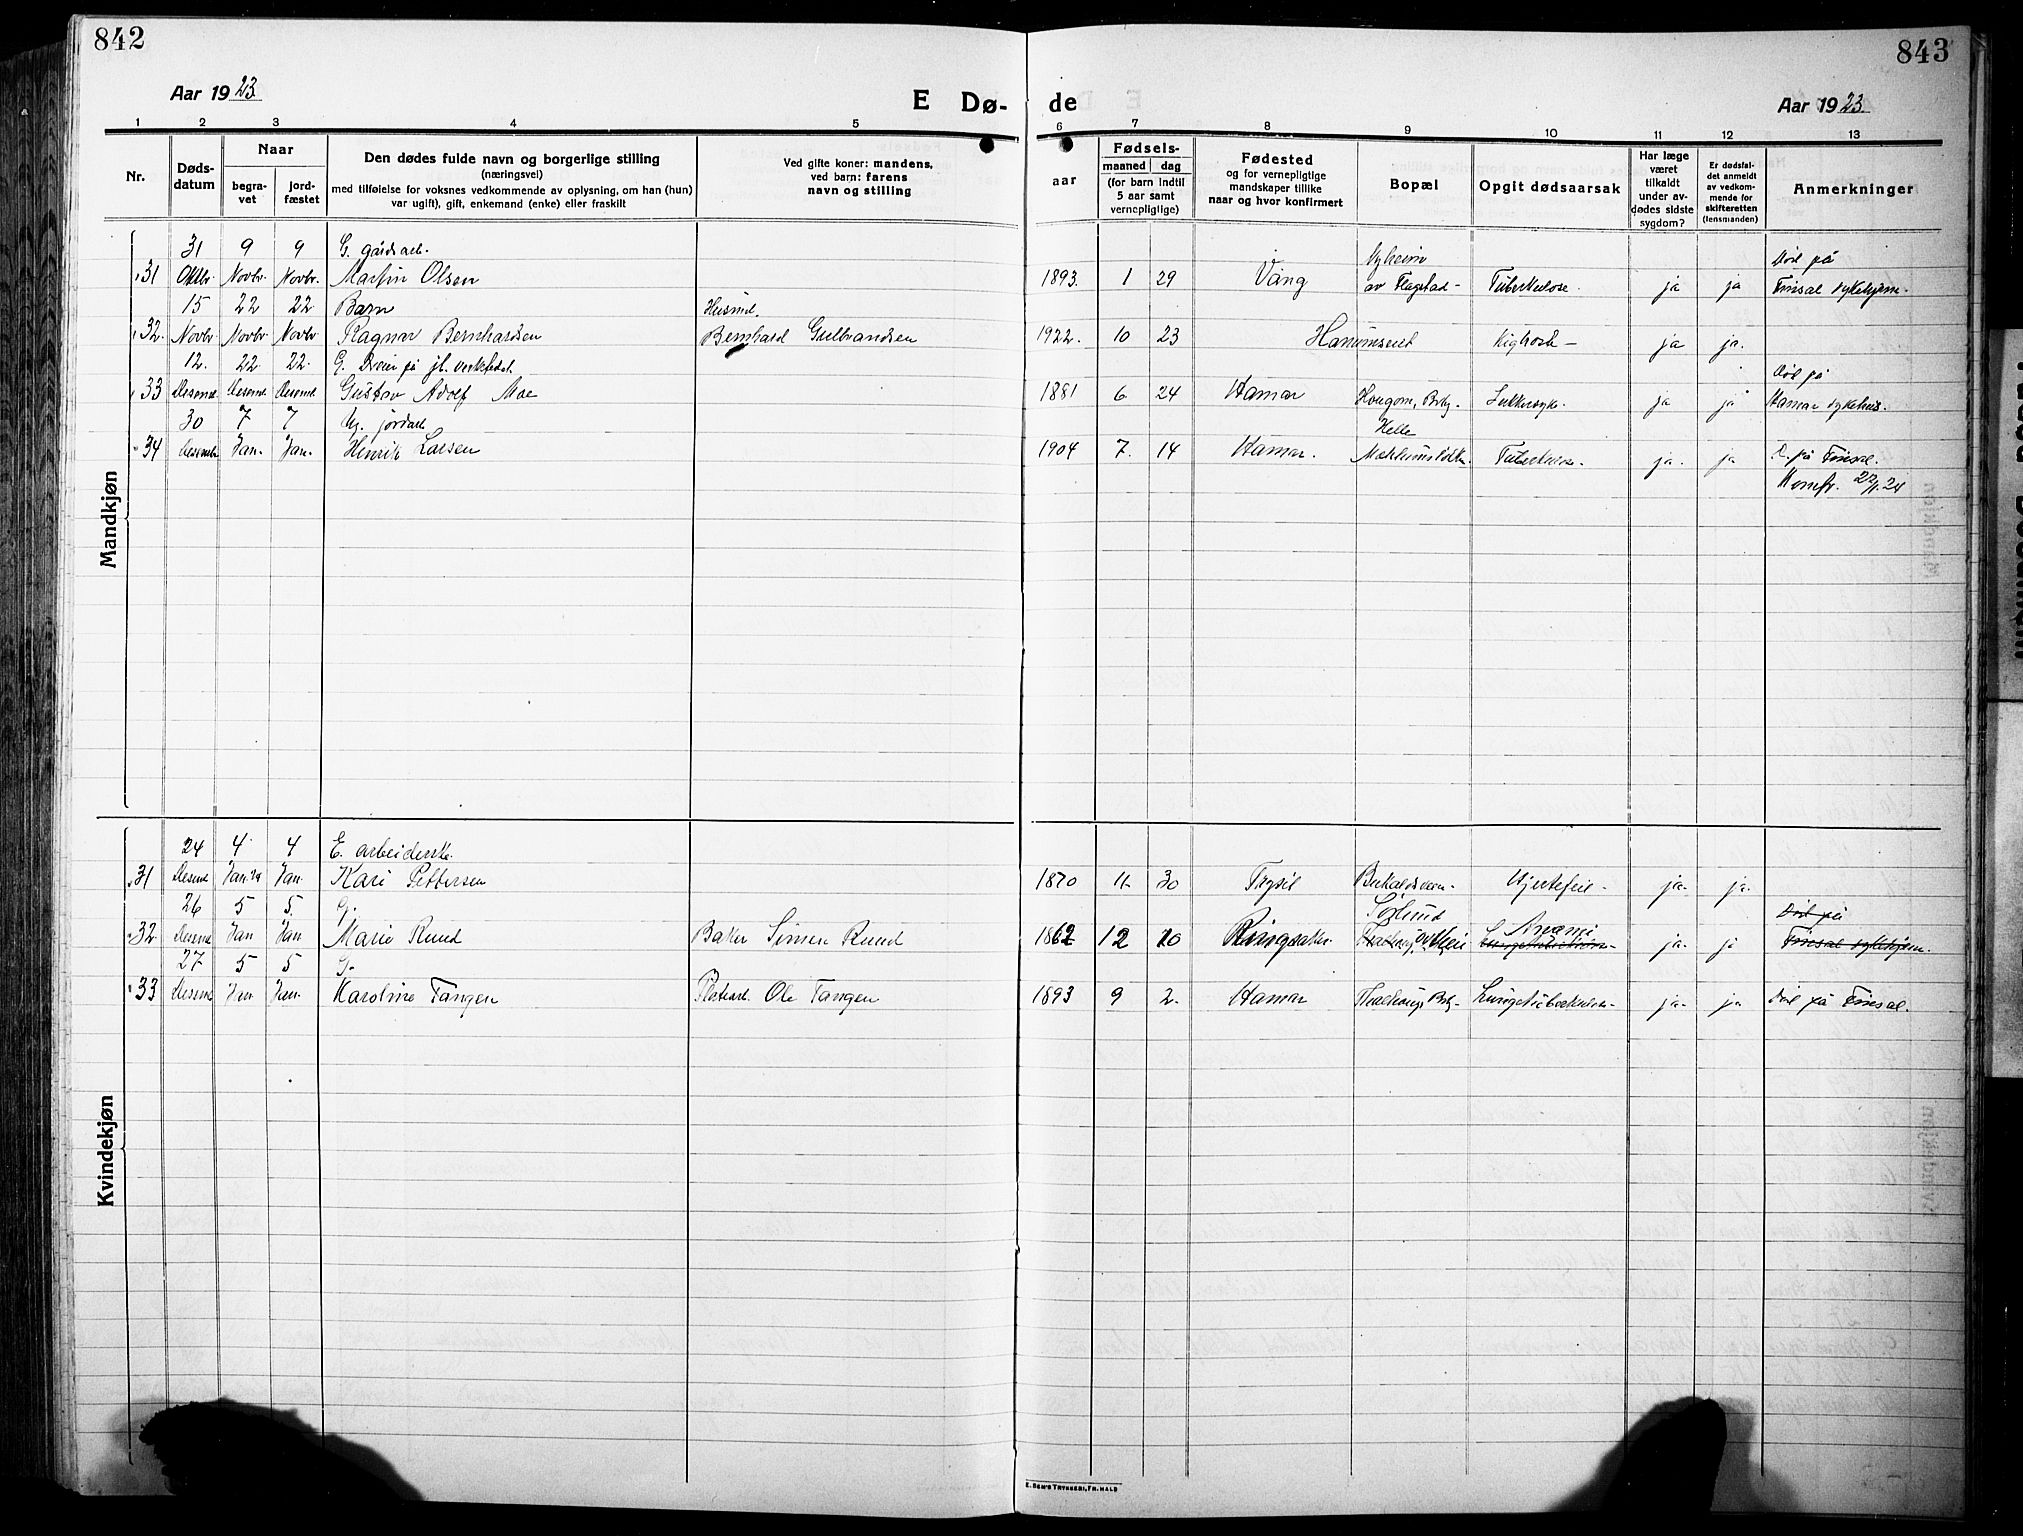 842
843
Aar 1923
E Dø-
de
Aar 1923
1 2 3 4 5 6 7 8 9 10 11 12 13
Nr.
Døds-
datum
Naar
begra-
vet
jord-
fæstet
Den dødes fulde navn og borgerlige stilling
(næringsvei)
med tilføielse for voksnes vedkommende av oplysning, om han (hun)
var ugift), gift, enkemand (enke) eller fraskilt
Ved gifte koner: mandens,
ved barn: farens
navn og stilling
Fødsels-
aar
maaned dag
(for barn indtil
5 aar samt
vernepligtige)
Fødested
og for vernepligtige
mandskaper tillike
naar og hvor konfirmert
Bopæl
Opgit dødsaarsak
Har læge
været
tilkaldt
under av-
dødes sidste
sygdom?
Er dødsfal-
det anmeldt
av vedkom-
mende for
skifteretten
(lensmanden)
Anmerkninger
Mandkjøn
31 9 9 G. gårdsarb. Nyheim Död på
31 Oktbr. Novbr. Novbr. Martin Olsen 1893. 1 29 Vang av Flagstad- Tuberkulose. ja ja Finsal sykehjem.
15 22 22 Barn Husmd.
32. Novbr. Novbr. Novbr Ragnar Bernhardsen Bernhard Gulbrandsen 1922. 10 23 Kighoste- ja ja.
12. 22 22. G. på jb. verkstedet. Död på
33 Desemd. Desemd. Desemd. Gustav Adolf Moe 1881 6 24 Hamar ja ja Hamar sykehus.
30 7 7 Ug. jordarb. Helle
34 Desembr Jan. Jan. Henrik Larsen 1904 7. 14 Hamar. Tuberkulose. ja. ja D. på Finsal.
22/1.24
Kvindekjøn
24 4 4 E. arbeiderske.
31 Desemd Jan. 24 Jan. Kari Pettersen 1870 11. 30 Trysil Hjertefeil- ja. ja.
26 5 5. G. Anæmi Död på
32. Desemd Jan Jan Marie Ruud Baker Simen Ruud 1862 12 10 Ringsaker. Lungetuberkulose ja. ja Finsal sykehjem.
27 5 5 G.
33 Desemd Jan. Jan. Karoline Tangen Ole Tangen 1893 9 2. Hamar Lungetuberkulose ja. ja Död på Finsal.
E. SEM'S TRYKKERI, FR.HALD